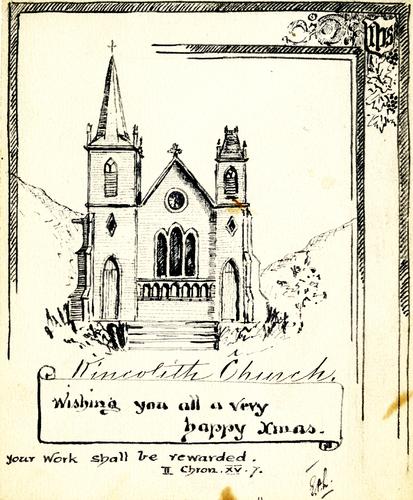 IHS
Kincolith Church.
Wishing you all a very
happy Xmas.
your work shall be rewarded.
II Chron. XV. 7.